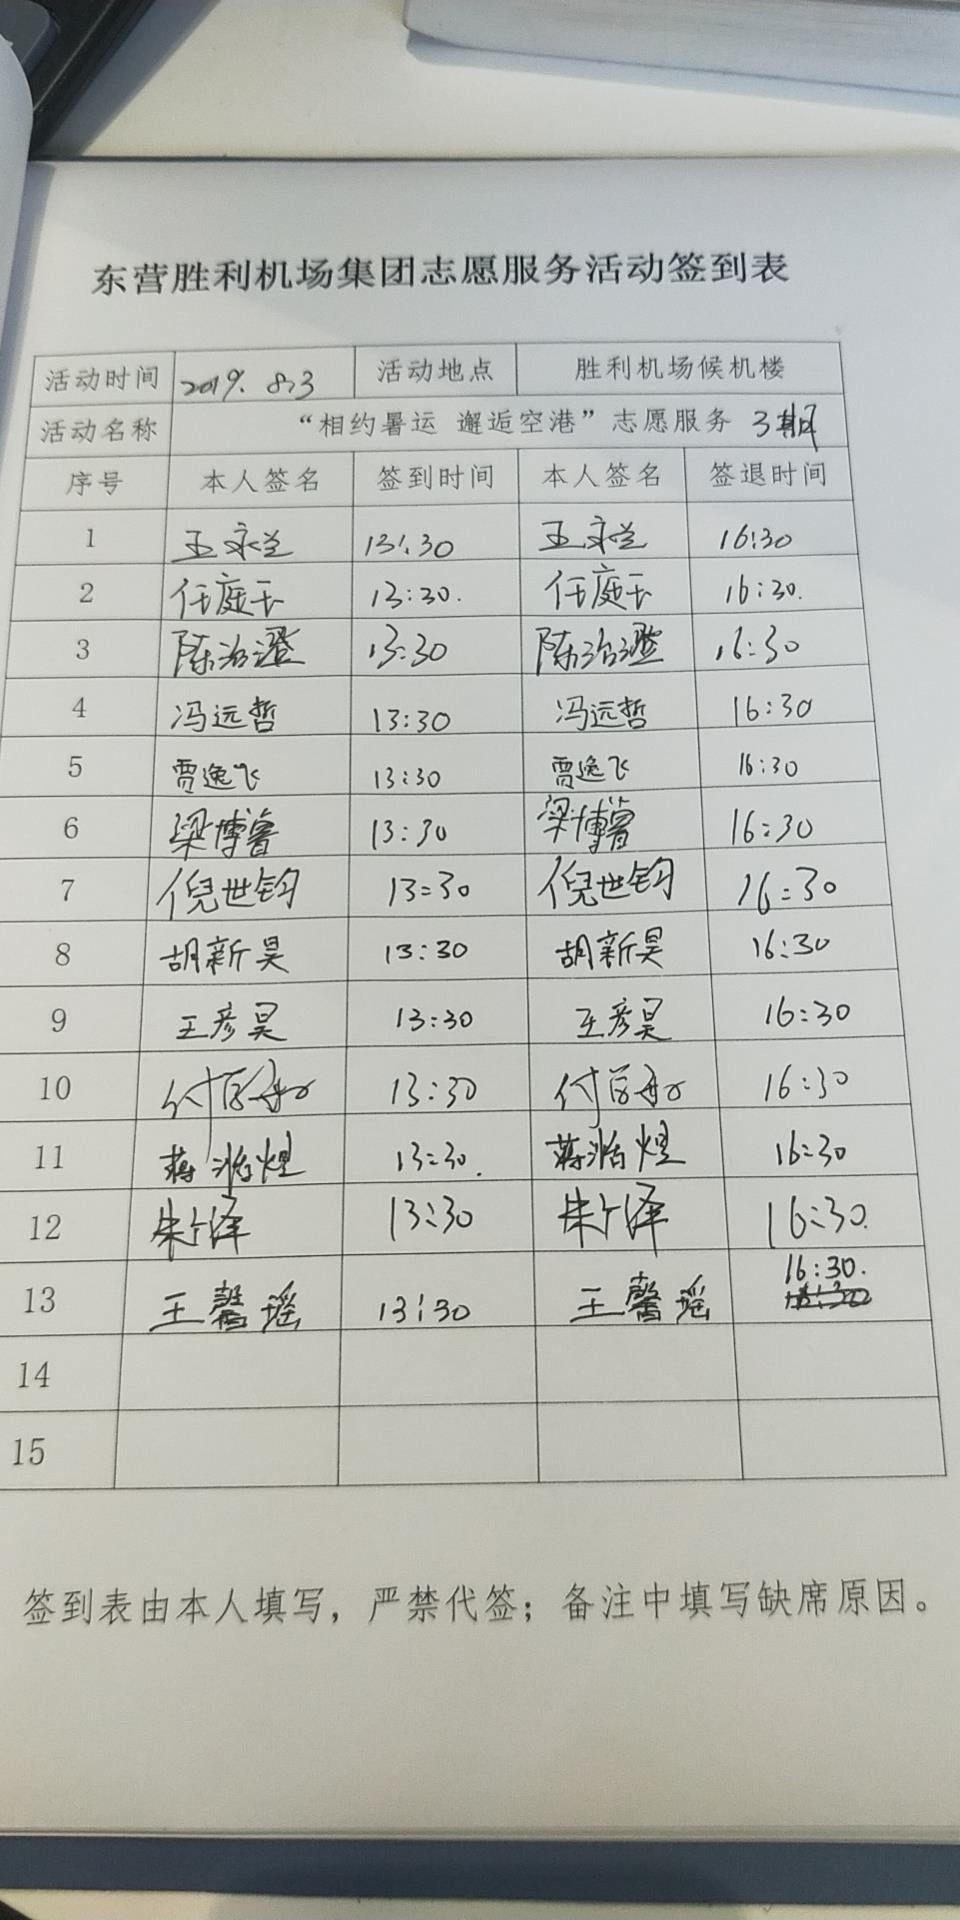 东营胜利机场集团志愿服务活动签到表
活动时间 2019. 8.3 活动地点 胜利机场候机楼
活动名称 “相约暑运 邂逅空港”志愿服务 3期
序号 本人签名 签到时间 本人签名 签退时间
1 王永兰 13:30 王永兰 16:30
2 任庭玉 13:30. 任庭玉 16:30.
3 陈治澄 13:30 陈治澄 16:30
4 冯远哲 13:30 冯远哲 16:30
5 贾逸飞 13:30 贾逸飞 16:30
6 梁博睿 13:30 梁博睿 16:30
7 倪世钧 13:30 倪世钧 16:30
8 胡新昊 13:30 胡新昊 16:30
9 王彦昊 13:30 王彦昊 16:30
10 付 13:30 付 16:30
11 蒋浩煜 13:30. 蒋浩煜 16:30
12 朱泽 13:30 朱泽 16:30.
13 王馨瑶 13:30 王馨瑶 16:30.
14
15
签到表由本人填写，严禁代签；备注中填写缺席原因。